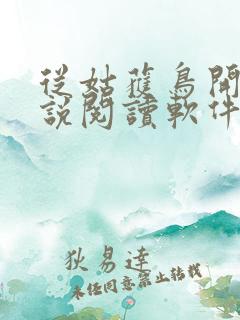 從姑蘇鳥開
說閱讀軟件
狄易達
未經同意禁止轉載